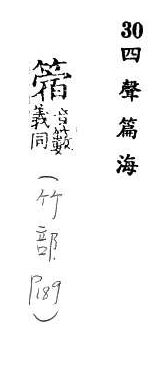 30四聲篇海
簪
音籔
義同
(竹部
P.189)